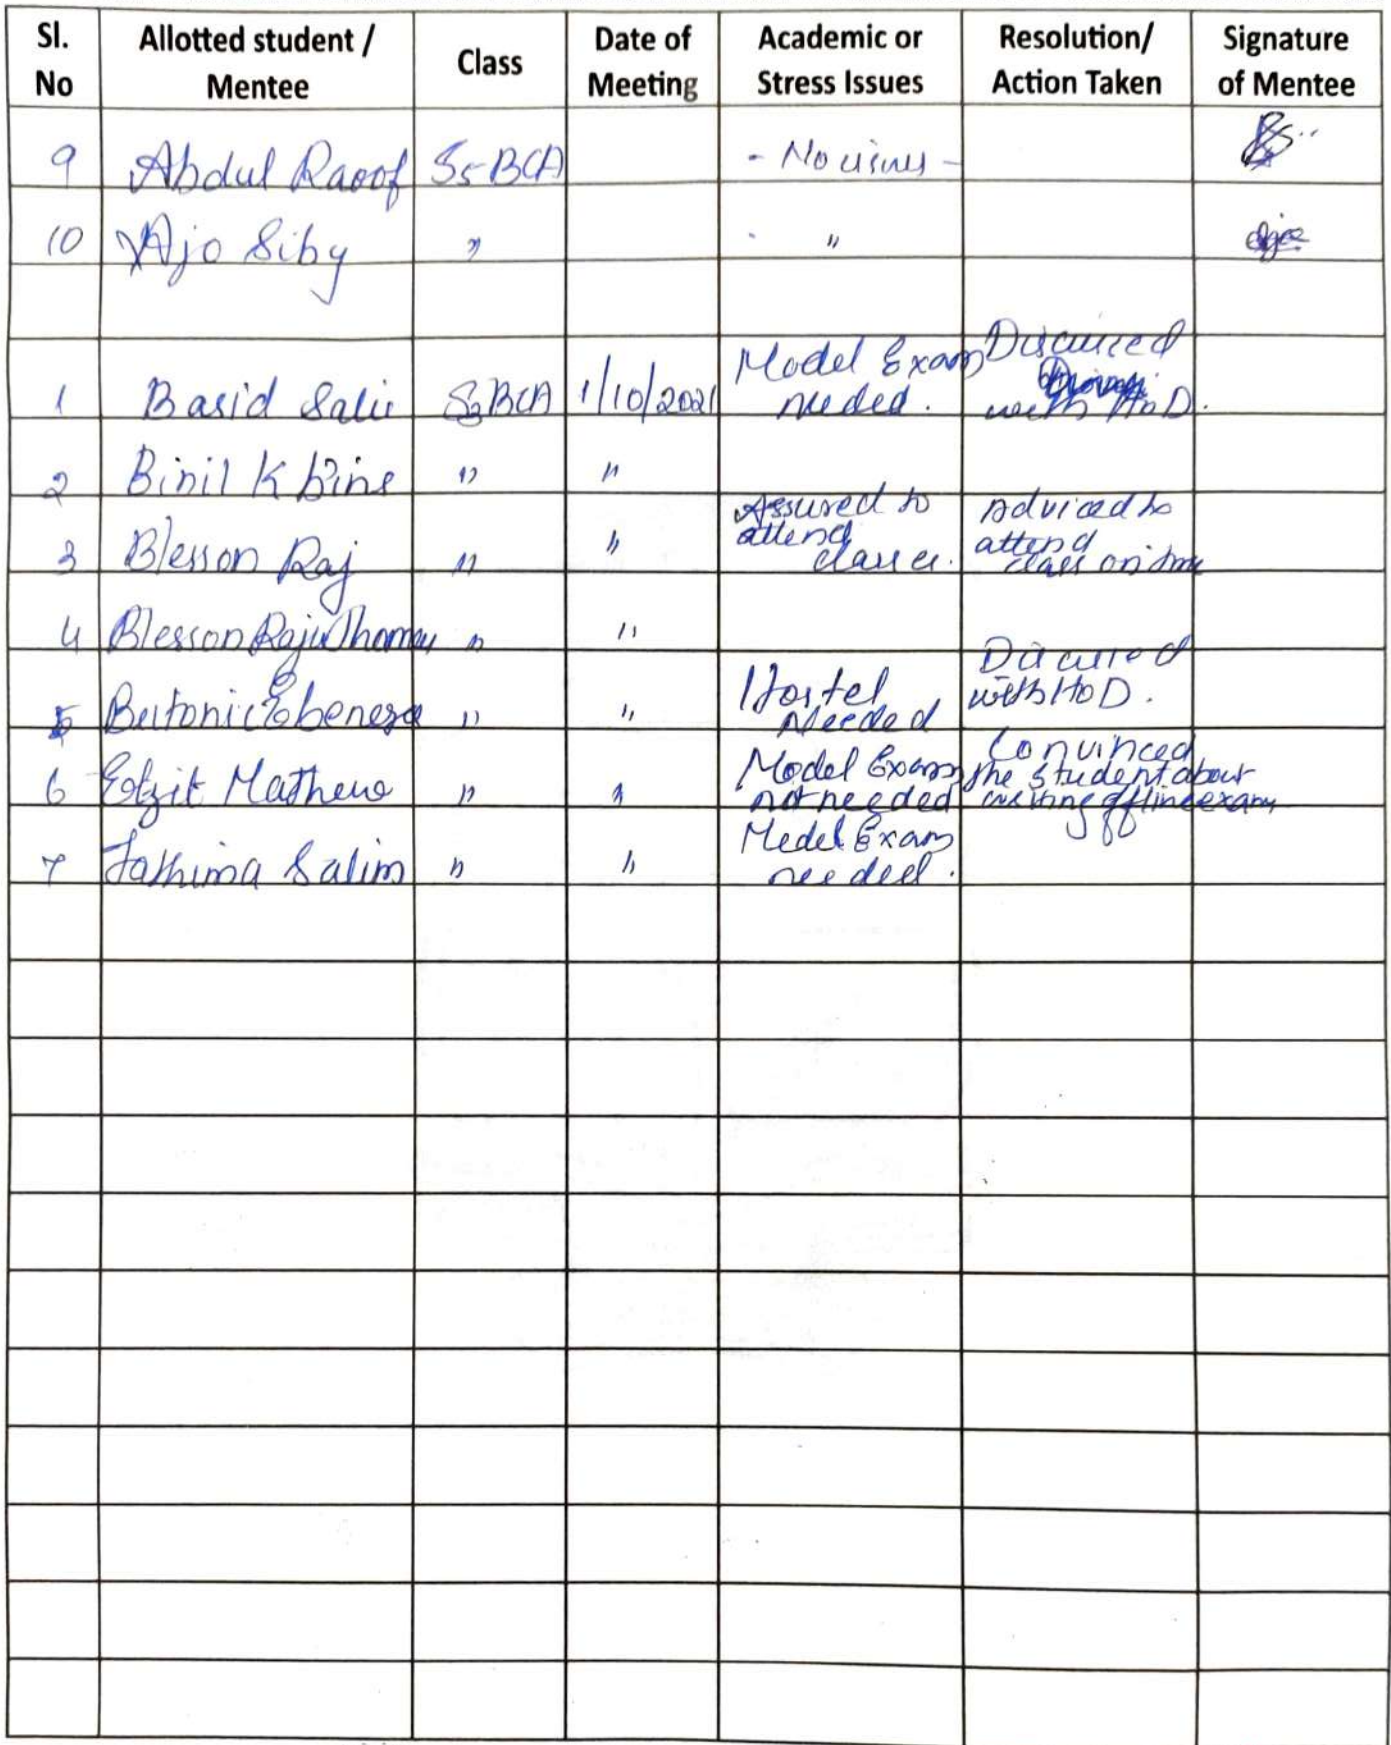 Sl. No Allotted student / Mentee Class Date of Meeting Academic or Stress Issues Resolution/ Action Taken Signature of Mentee
9 Abdul Raoof S5 BCA - No issues -
10 Ajo Siby " "
1 Basid Salim S3 BCA 1/10/2021 Model Exam needed. Discussed with HoD.
2 Binil K Bins " "
3 Blesson Raj " " Assured to attend classes. Adviced to attend class on time
4 Blesson Raju Thomas " "
5 Ebenezer " " Hostel Needed Discussed with HoD.
6 Mathew " " Model Exam not needed Convinced the student about writing offline exam
7 Fathima Salim " " Model Exam needed.